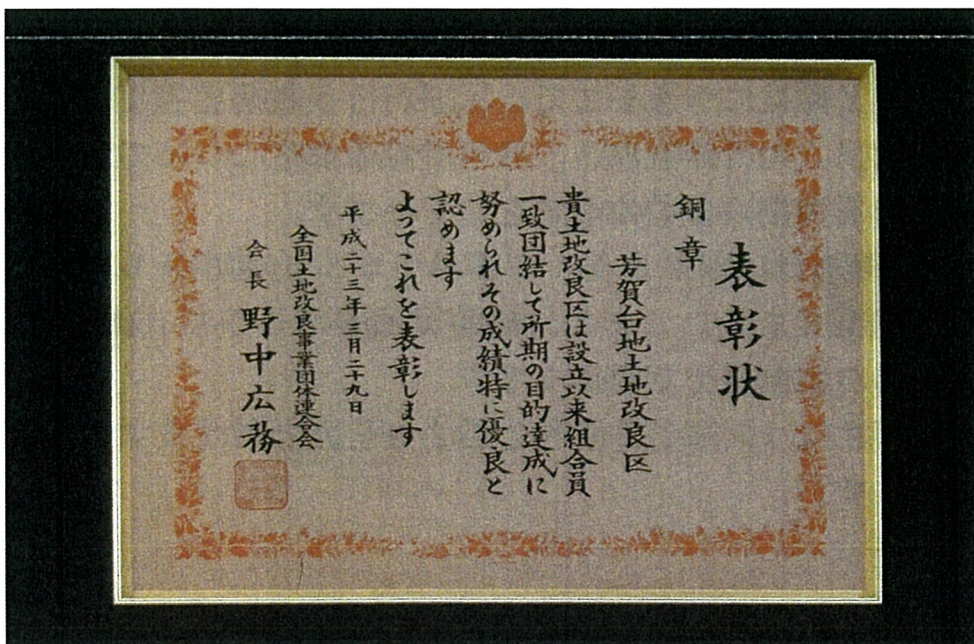 表彰状
銅章
芳賀台地土地改良区
貴土地改良区は設立以来組合員
一致団結して所期の目的達成に
努められその成績特に優良と
認めます
よってこれを表彰します
平成二十三年三月二十九日
全国土地改良事業団体連合会
会長 野中広務